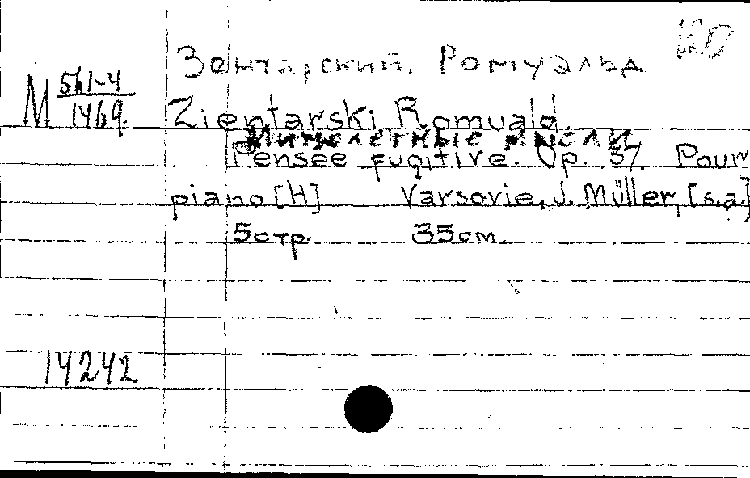 Зентарский, Ромуальд
М 561-4
1469.
Zientarski Romuald.
Мимолетные мысли
Pensée fugitive. Op. 57. Pour
piano [Н] Varsovie, J. Müller, [s.a.]
5стр. 35см.
14242